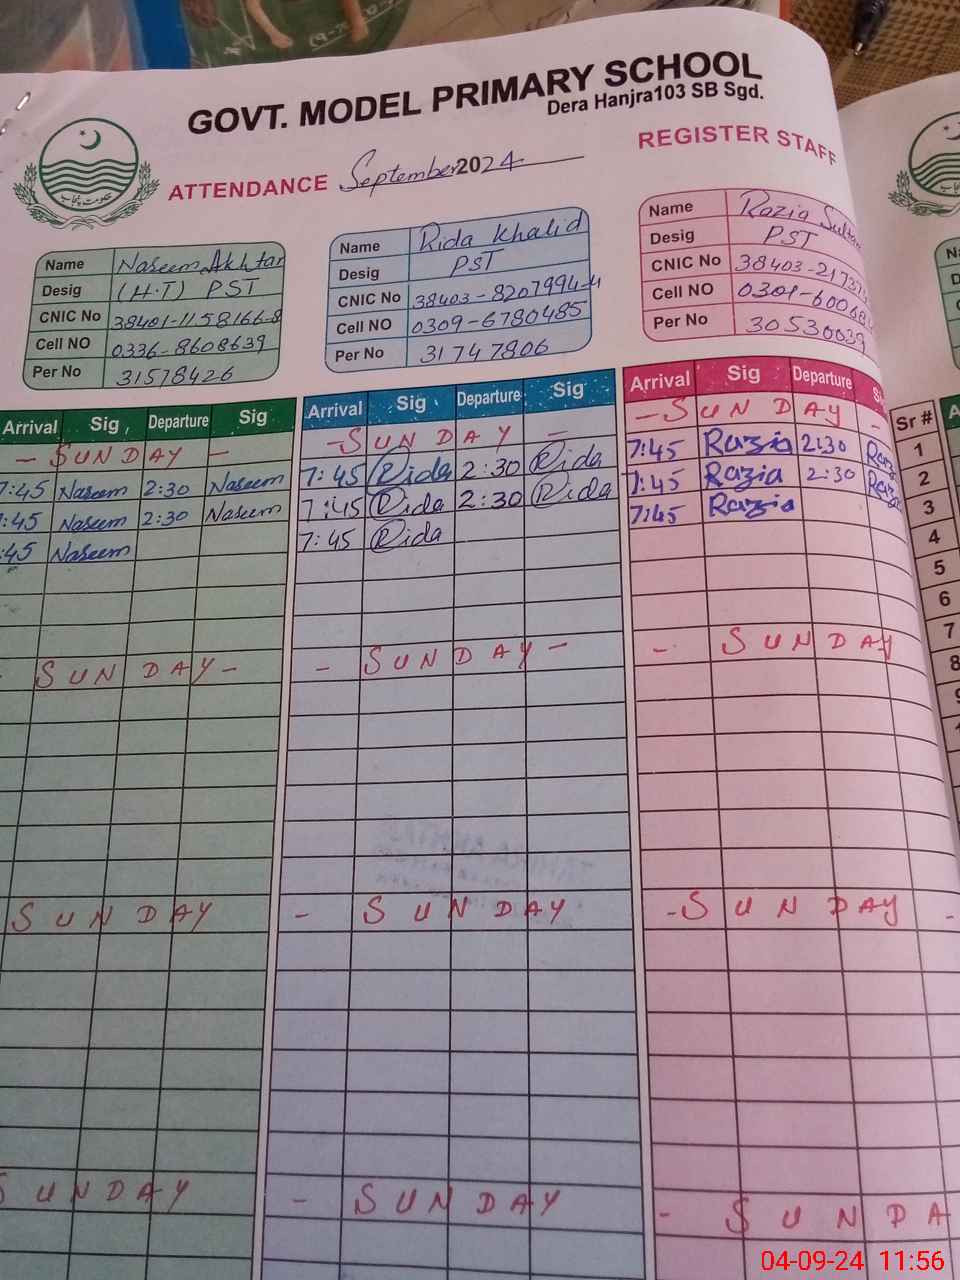 GOVT. MODEL PRIMARY SCHOOL
Dera Hanjra103 SB Sgd.
ATTENDANCE September 2024
REGISTER STAFF
حکومت پنجاب
Name Naseem Akhtar
Desig (H.T) PST
CNIC No 38401-1158166-8
Cell NO 0336-8608639
Per No 31578426
Name Rida Khalid
Desig PST
CNIC No 38403-8207994-4
Cell NO 0309-6780485
Per No 31747806
Name Razia
Desig PST
CNIC No
Cell NO
Per No 30530039
Arrival Sig Departure Sig
- SUNDAY -
7:45 Naseem 2:30 Naseem
7:45 Naseem 2:30 Naseem
:45 Naseem
SUNDAY -
SUNDAY
SUNDAY
Arrival Sig Departure Sig
- SUNDAY -
7:45 Rida 2:30 Rida
7:45 Rida 2:30 Rida
7:45 Rida
- SUNDAY -
- SUNDAY
- SUNDAY
Arrival Sig Departure
- SUNDAY -
7:45 Razia 2:30
7:45 Razia 2:30
7:45 Razia
- SUNDAY
- SUNDAY
- SUNDA
Sr #
1
2
3
4
5
6
7
8
04-09-24 11:56